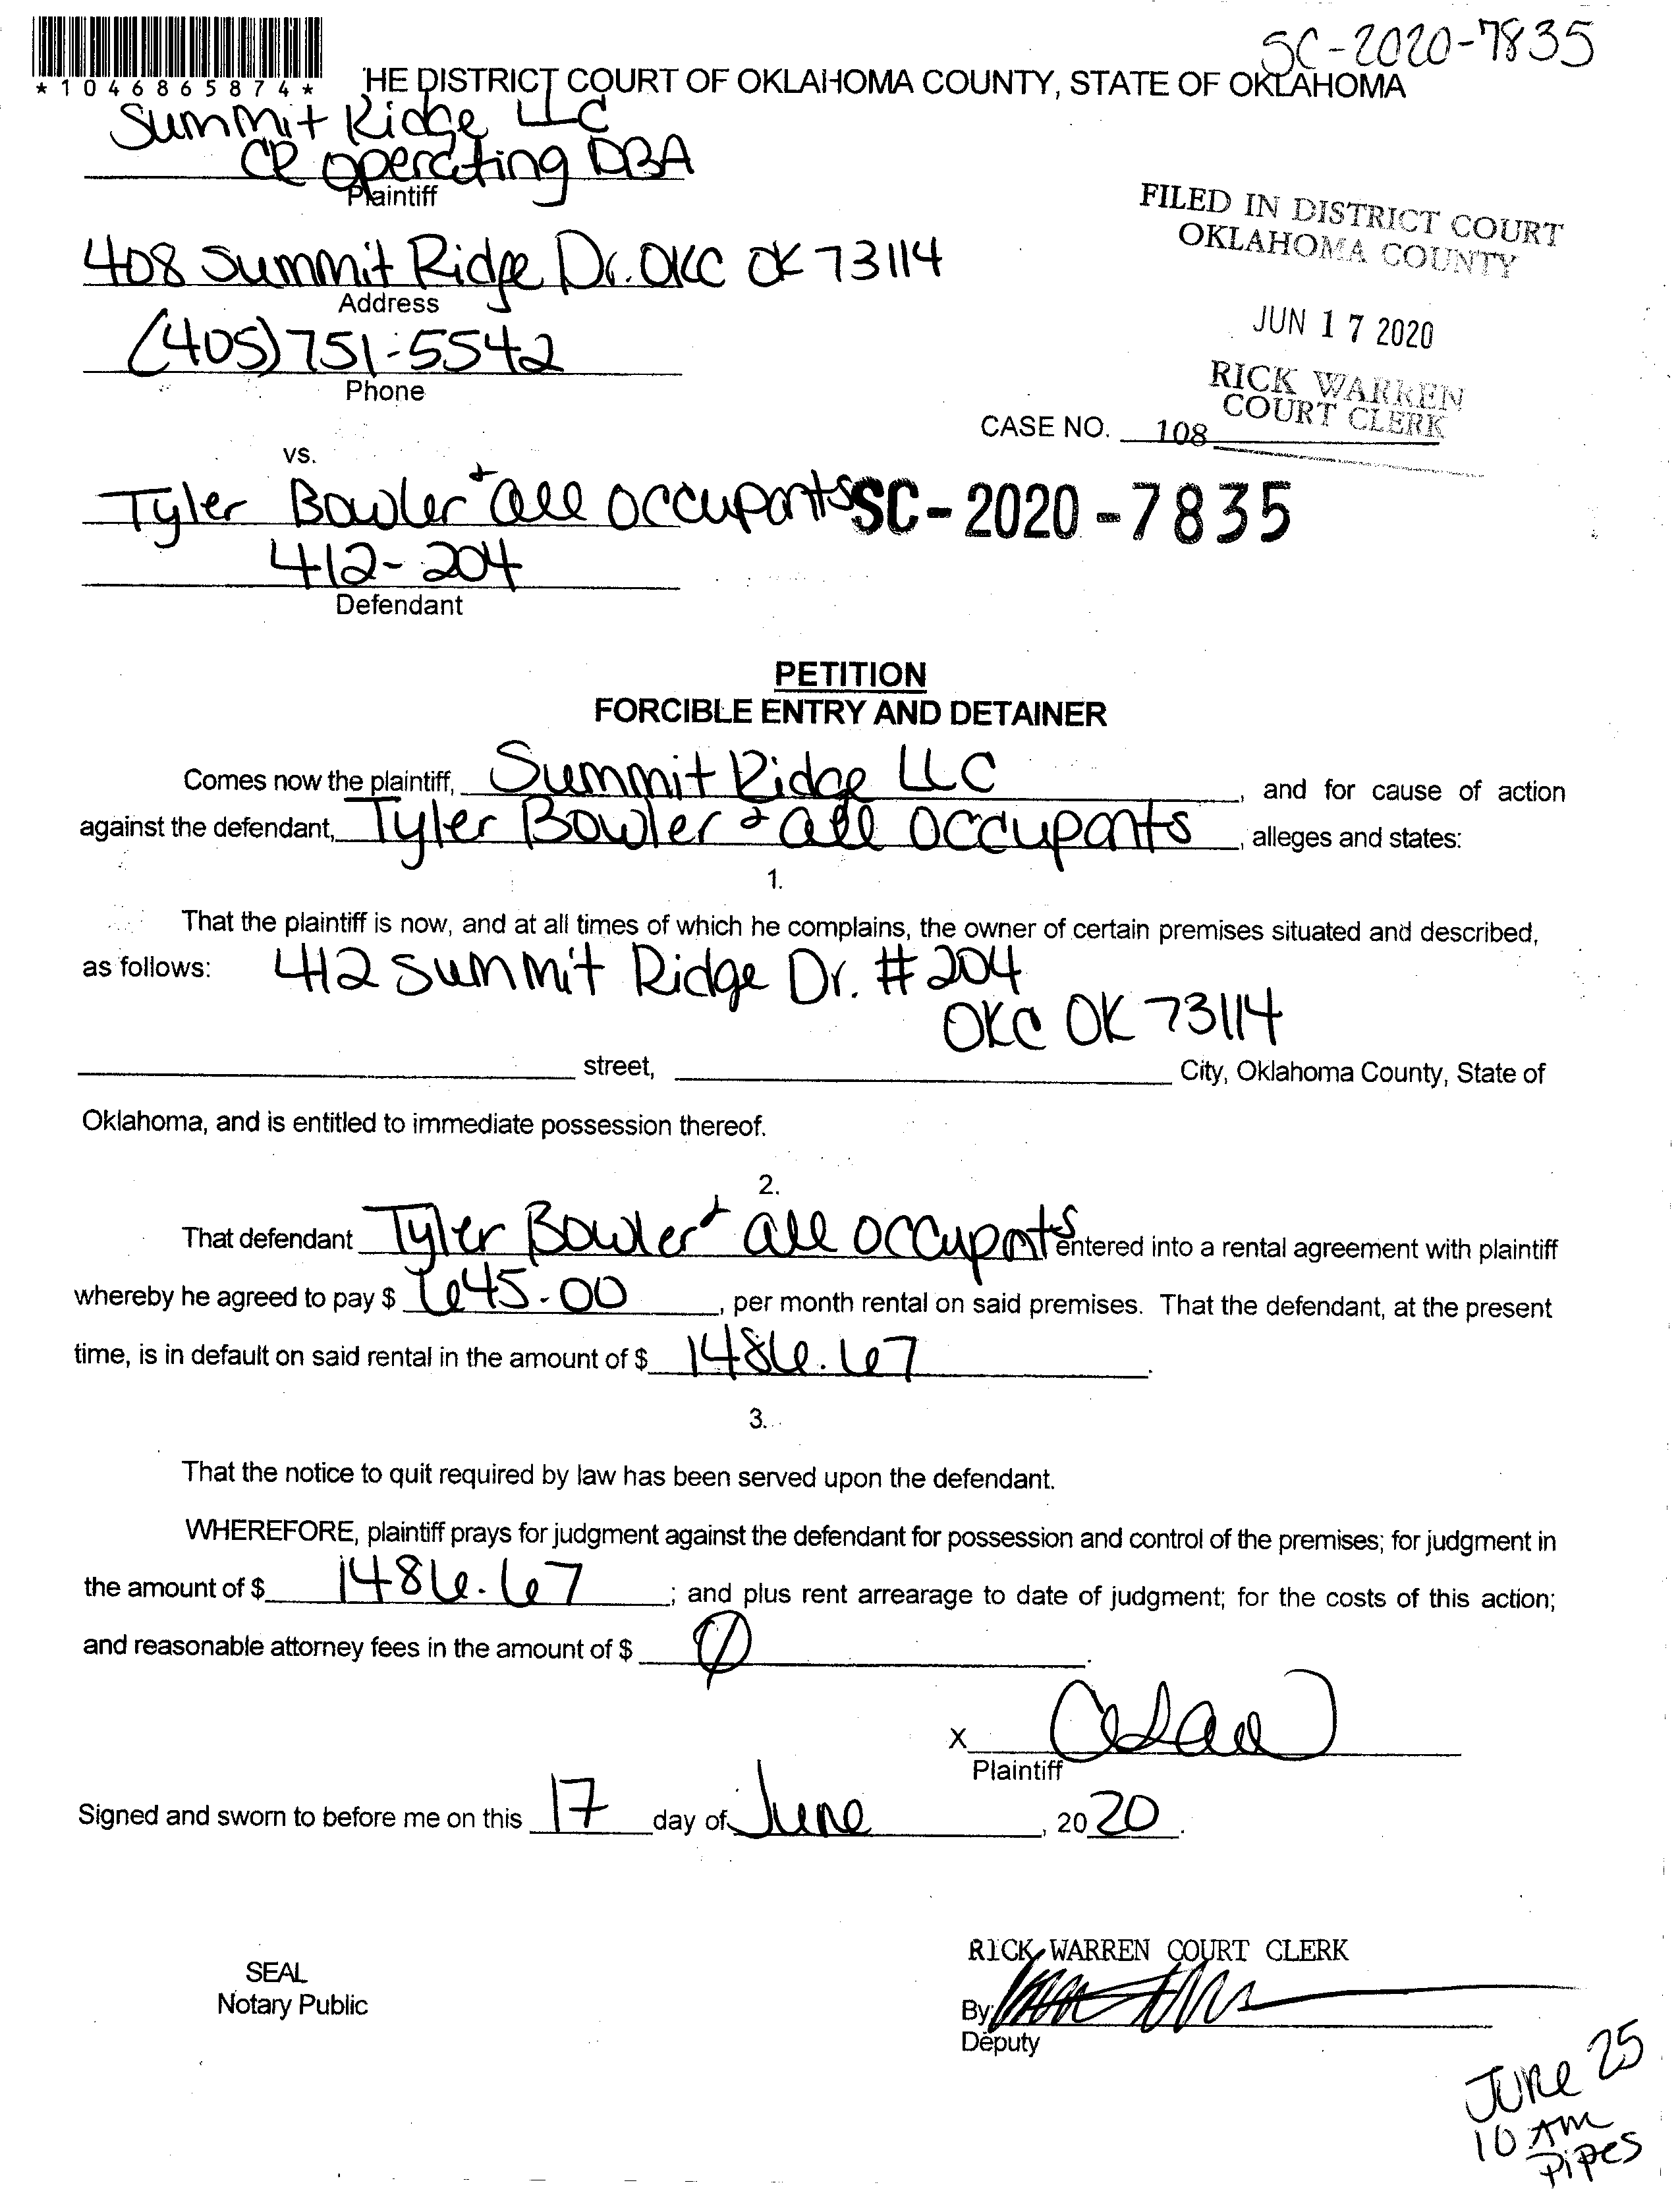 SC-2020-7835
*1046865874*
HE DISTRICT COURT OF OKLAHOMA COUNTY, STATE OF OKLAHOMA
Summit Ridge LLC
CR operating DBA
Plaintiff
408 Summit Ridge Dr. OKC OK 73114
Address
(405) 751-5542
Phone
FILED IN DISTRICT COURT
OKLAHOMA COUNTY
JUN 17 2020
RICK WARREN
COURT CLERK
CASE NO. 108
vs.
Tyler Bowler + all occupants SC-2020-7835
412-204
Defendant
PETITION
FORCIBLE ENTRY AND DETAINER
Comes now the plaintiff, Summit Ridge LLC, and for cause of action
against the defendant, Tyler Bowler + all occupants, alleges and states:
1.
That the plaintiff is now, and at all times of which he complains, the owner of certain premises situated and described,
as follows: 412 Summit Ridge Dr. #204
OKC OK 73114
street, City, Oklahoma County, State of
Oklahoma, and is entitled to immediate possession thereof.
2.
That defendant Tyler Bowler + all occupnts entered into a rental agreement with plaintiff
whereby he agreed to pay $ 645.00, per month rental on said premises. That the defendant, at the present
time, is in default on said rental in the amount of $ 1486.67.
3.
That the notice to quit required by law has been served upon the defendant.
WHEREFORE, plaintiff prays for judgment against the defendant for possession and control of the premises; for judgment in
the amount of $ 1486.67; and plus rent arrearage to date of judgment; for the costs of this action;
and reasonable attorney fees in the amount of $ Ø.
X
Plaintiff
Signed and sworn to before me on this 17 day of June, 2020.
RICK WARREN COURT CLERK
SEAL
Notary Public
By:
Deputy
June 25
10 AM
Pipes